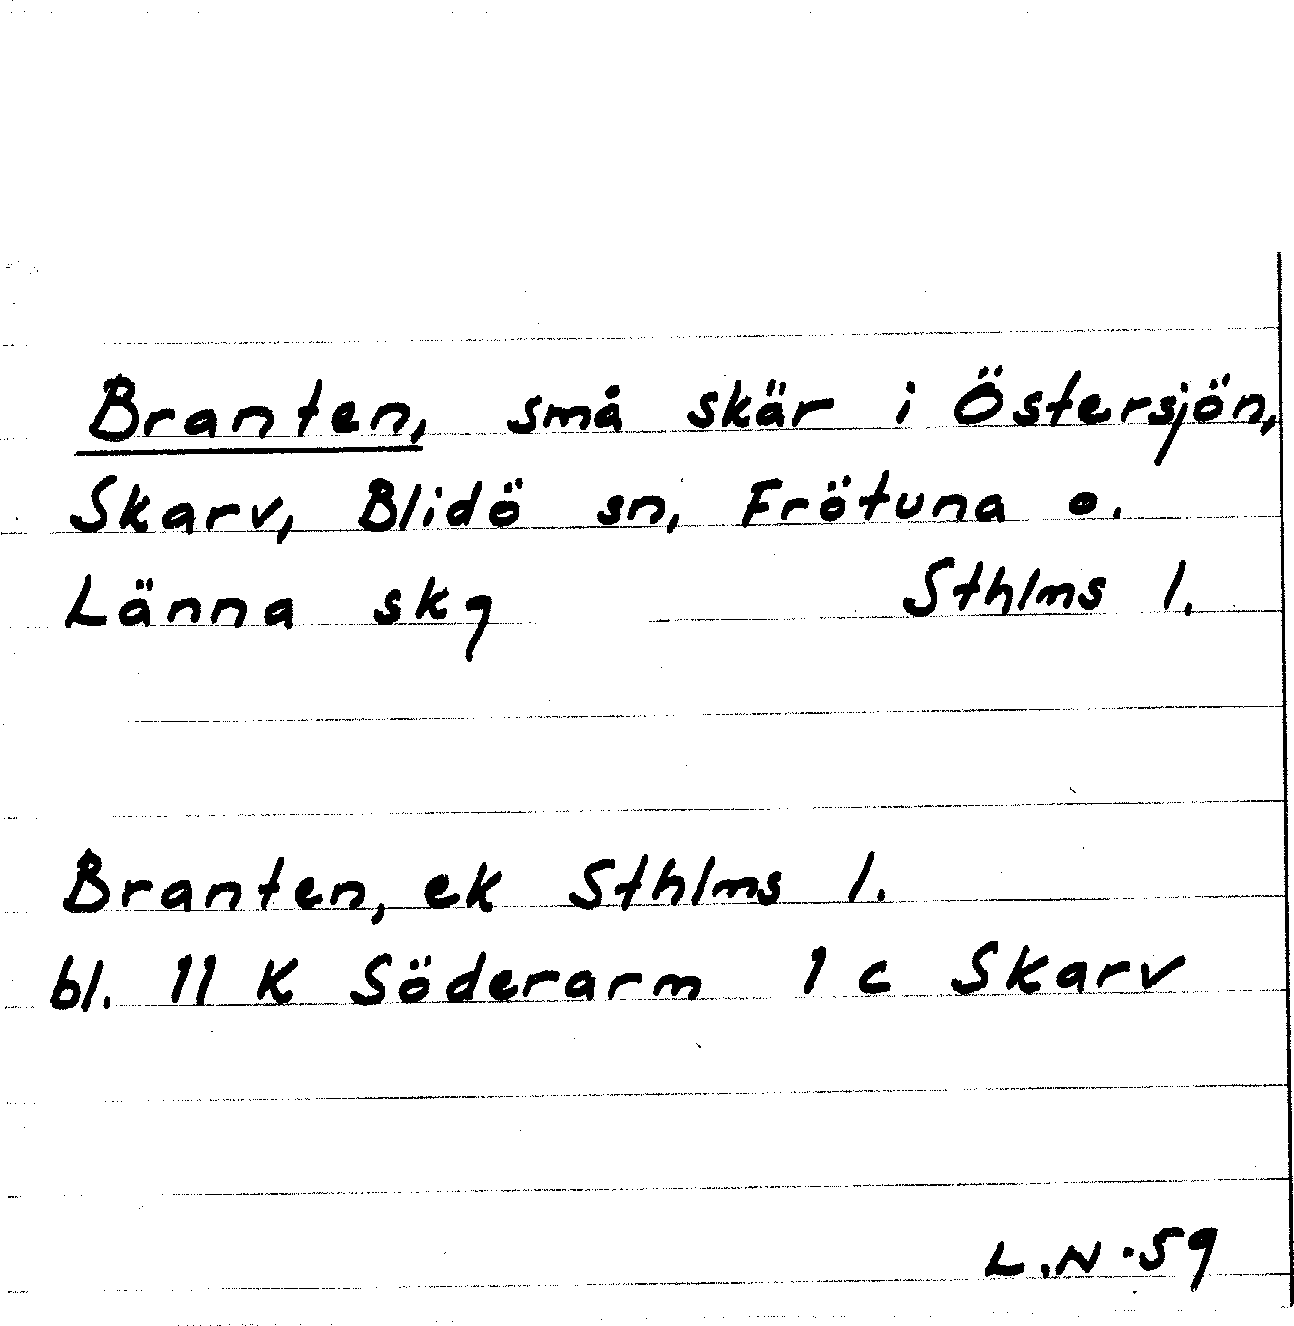 Branten, små skär i Östersjön,
Skarv, Blidö sn, Frötuna o.
Länna skg Sthlms l.
Branten, ek Sthlms l.
bl. 11 K Söderarm 1 c Skarv
L.N.59